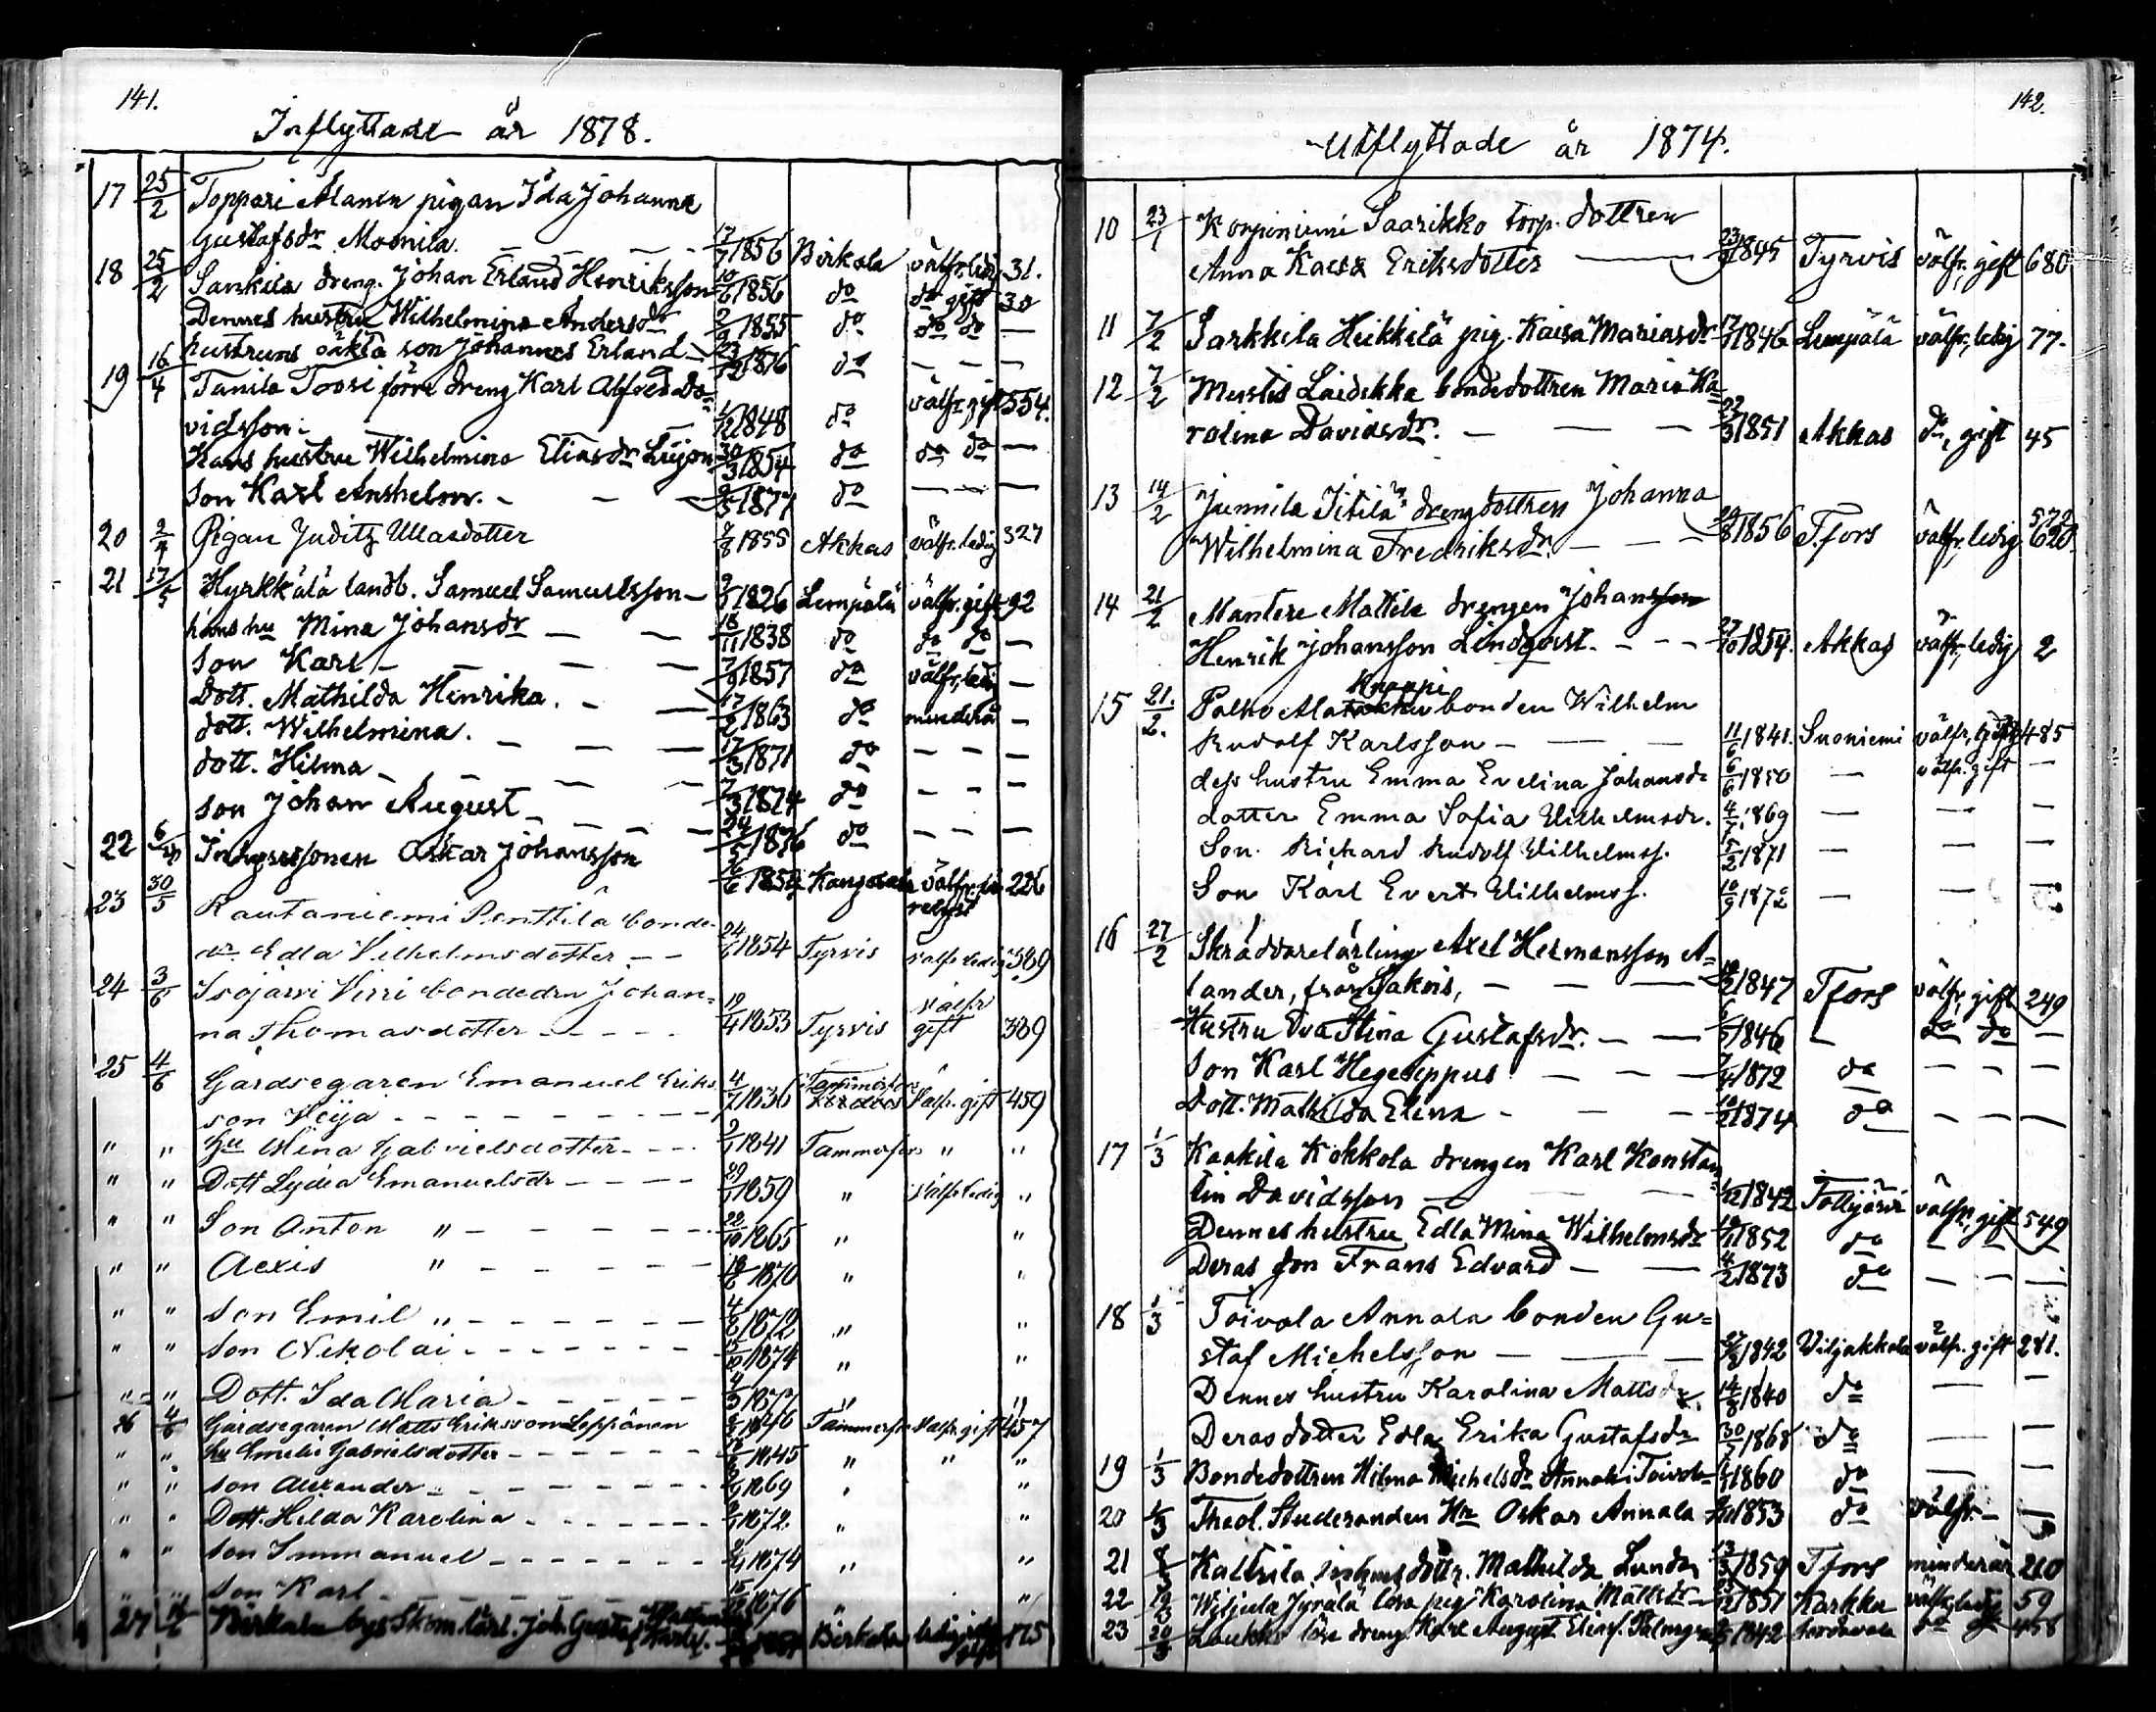 141.
Inflyttade år 1878.
17 25/2 Toppari Alanen pigan Ida Johanna
Gustafsdr Moonila. 17/7 1856 Birkala välfr. ledig 31.
18 25/2 Sankila dreng. Johan Erland Henriksson 10/6 1856 do do gift 30
Dennes hustru Wilhelmina Andersdr 2/9 1855 do do do —
hustruns oäkta son Johannes Erland 23/12 1876 do — —
19 16/4 Tanila Toosi förre dreng Karl Alfred Da=
vidsson. 1/12 1848 do välfr. gift 554.
Hans hustru Wilhelmina Eliasdr 30/3 1854 do do do —
Son Karl Anshelm. 1877 do — —
20 2/4 Pigan Juditz Ullasdotter 2/8 1855 Akkas välfr. ledig 327
21 17/5 Hyrkkälä landb. Samuel Samuelsson 1826 Lempälä välfr. gift 92
hans hu Mina Johansdr 18/11 1838 do do do —
Son Karl 7/9 1857 do välfr, ledig —
Dott. Mathilda Henrika. 17/2 1863 do minderår —
dott. Wilhelmina. 17/3 1871 do — — —
dott. Hilma 7/3 1874 do — — —
son Johan August 24/5 1876 do — — —
22 Oskar Johansson 1854 Kangasala välfr. 226
23 30/5 Rautaniemi Penttilä bonde-
dr Edla Vilhelmsdotter 24/6 1854 Tyrvis välfr ledig 389
24 3/6 Isojärvi Virri bondedn Johan=
na Thomasdotter 19/4 1853 Tyrvis Välfr gift 389
25 4/6 Gårdsegaren Emanuel Eriks
son Heija 4/7 1836 Tammerfors Välfr. gift 459
" " hu Mina Gabrielsdotter 2/1 1841 Tammerfors " "
" " Dott Lydia Emanuelsdr 29/1 1859 " Välfr ledig "
" " Son Anton " 22/10 1865 " "
" " Alexis " 19/8 1870 " "
" " Son Emil " 4/8 1872 " "
" " Son Nikolai 15/10 1874 " "
" " Dott. Ida Maria 1877 " "
26 4/6 Gårdsegaren Matts Eriksson Leppänen 1846 Tammerfors Välfr gift 457
" " hu Emelie Gabrielsdotter 1845 " " "
" " son Alexander 1869 " "
" " Dott. Hilda Karolina 1872 " "
" " son Immanuel 1874 " "
" " son Karl 1876 " "
27 Birkala bys Skom. lärl. Joh. Gustaf Karls. Birkala ledig 175
142.
Utflyttade år 1874.
10 23/1 Korpiniemi Saarikko torp. dottren
Anna Kaesa Eriksdotter 1845 Tyrvis välfr, gift 680
11 7/2 Sarkkila Heikkilä pig. Kaisa Mariasdr 1846 Lempälä välfr, ledig 77.
12 7/2 Mustis Laidikka bondedottren Maria Ka=
rolina Davidsdr. 22/3 1851 Akkas do, gift 45
13 14/2 Junnila Iitilä drengdottren Johanna
Wilhelmina Fredriksdr. 1856 T.fors välfr, ledig 572 620.
14 21/2 Mantere Mattila drengen Johansson
Henrik Johansson Lindqvist. 27/10 1854. Akkas välfr, ledig 2
15 21./2. Palho Ala Knaapi bonden Wilhelm
Rudolf Karlsson 11/6 1841. Suoniemi välfr, gift 485
dess hustru Emma Evelina Johansdr 6/6 1850 — välfr. gift —
dotter Emma Sofia Wilhelmsdr. 4/7 1869 — — —
Son. Richard Rudolf Wilhelmss. 5/2 1871 — — —
Son Karl Evert Wilhelmss. 10/9 1872 — —
16 27/2 Skräddarelärling Axel Hermansson A=
lander, från Sakois, 1847 Tfors välfr, gift 249
Hustru Eva Stina Gustafsdr. 1846 do do —
Son Karl Hegesippus 1872 do — — —
Dott. Mathilda Elina 1874 do — — —
17 1/3 Kaakila Kokkola drengen Karl Konstan=
tin Davidsson 1/12 1842 Tottijärvi välfr, gift 549
Dennes hustru Edla Mina Wilhelmsdr 1852 do — — —
Deras son Frans Edvard 4/2 1873 do — — —
18 1/3 Toivola Annala bonden Gu=
staf Michelsson 27/8 1842 Viljakkala välfr. gift 281.
Dennes hustru Karolina Mattsdr. 14/8 1840 do — —
Deras dotter Edla Erika Gustafsdr 30/5 1868 do — —
19 1/3 Bondedottren Hilma Michelsdr Annala Toivola 1860 do — —
20 1/3 Theol. Studeranden Hr Oskar Annala 1853 do välfr. —
21 Kalttila dottr. Mathilda Lunda 13/3 1859 Tfors minderår 210
22 Wiljula Jyrälä lösa pig Karolina Mattsdr 1851 Karkku välfr, ledig 59
23 20/3 Laukko löse dreng Karl August Eliass. Palmgren 1842 458